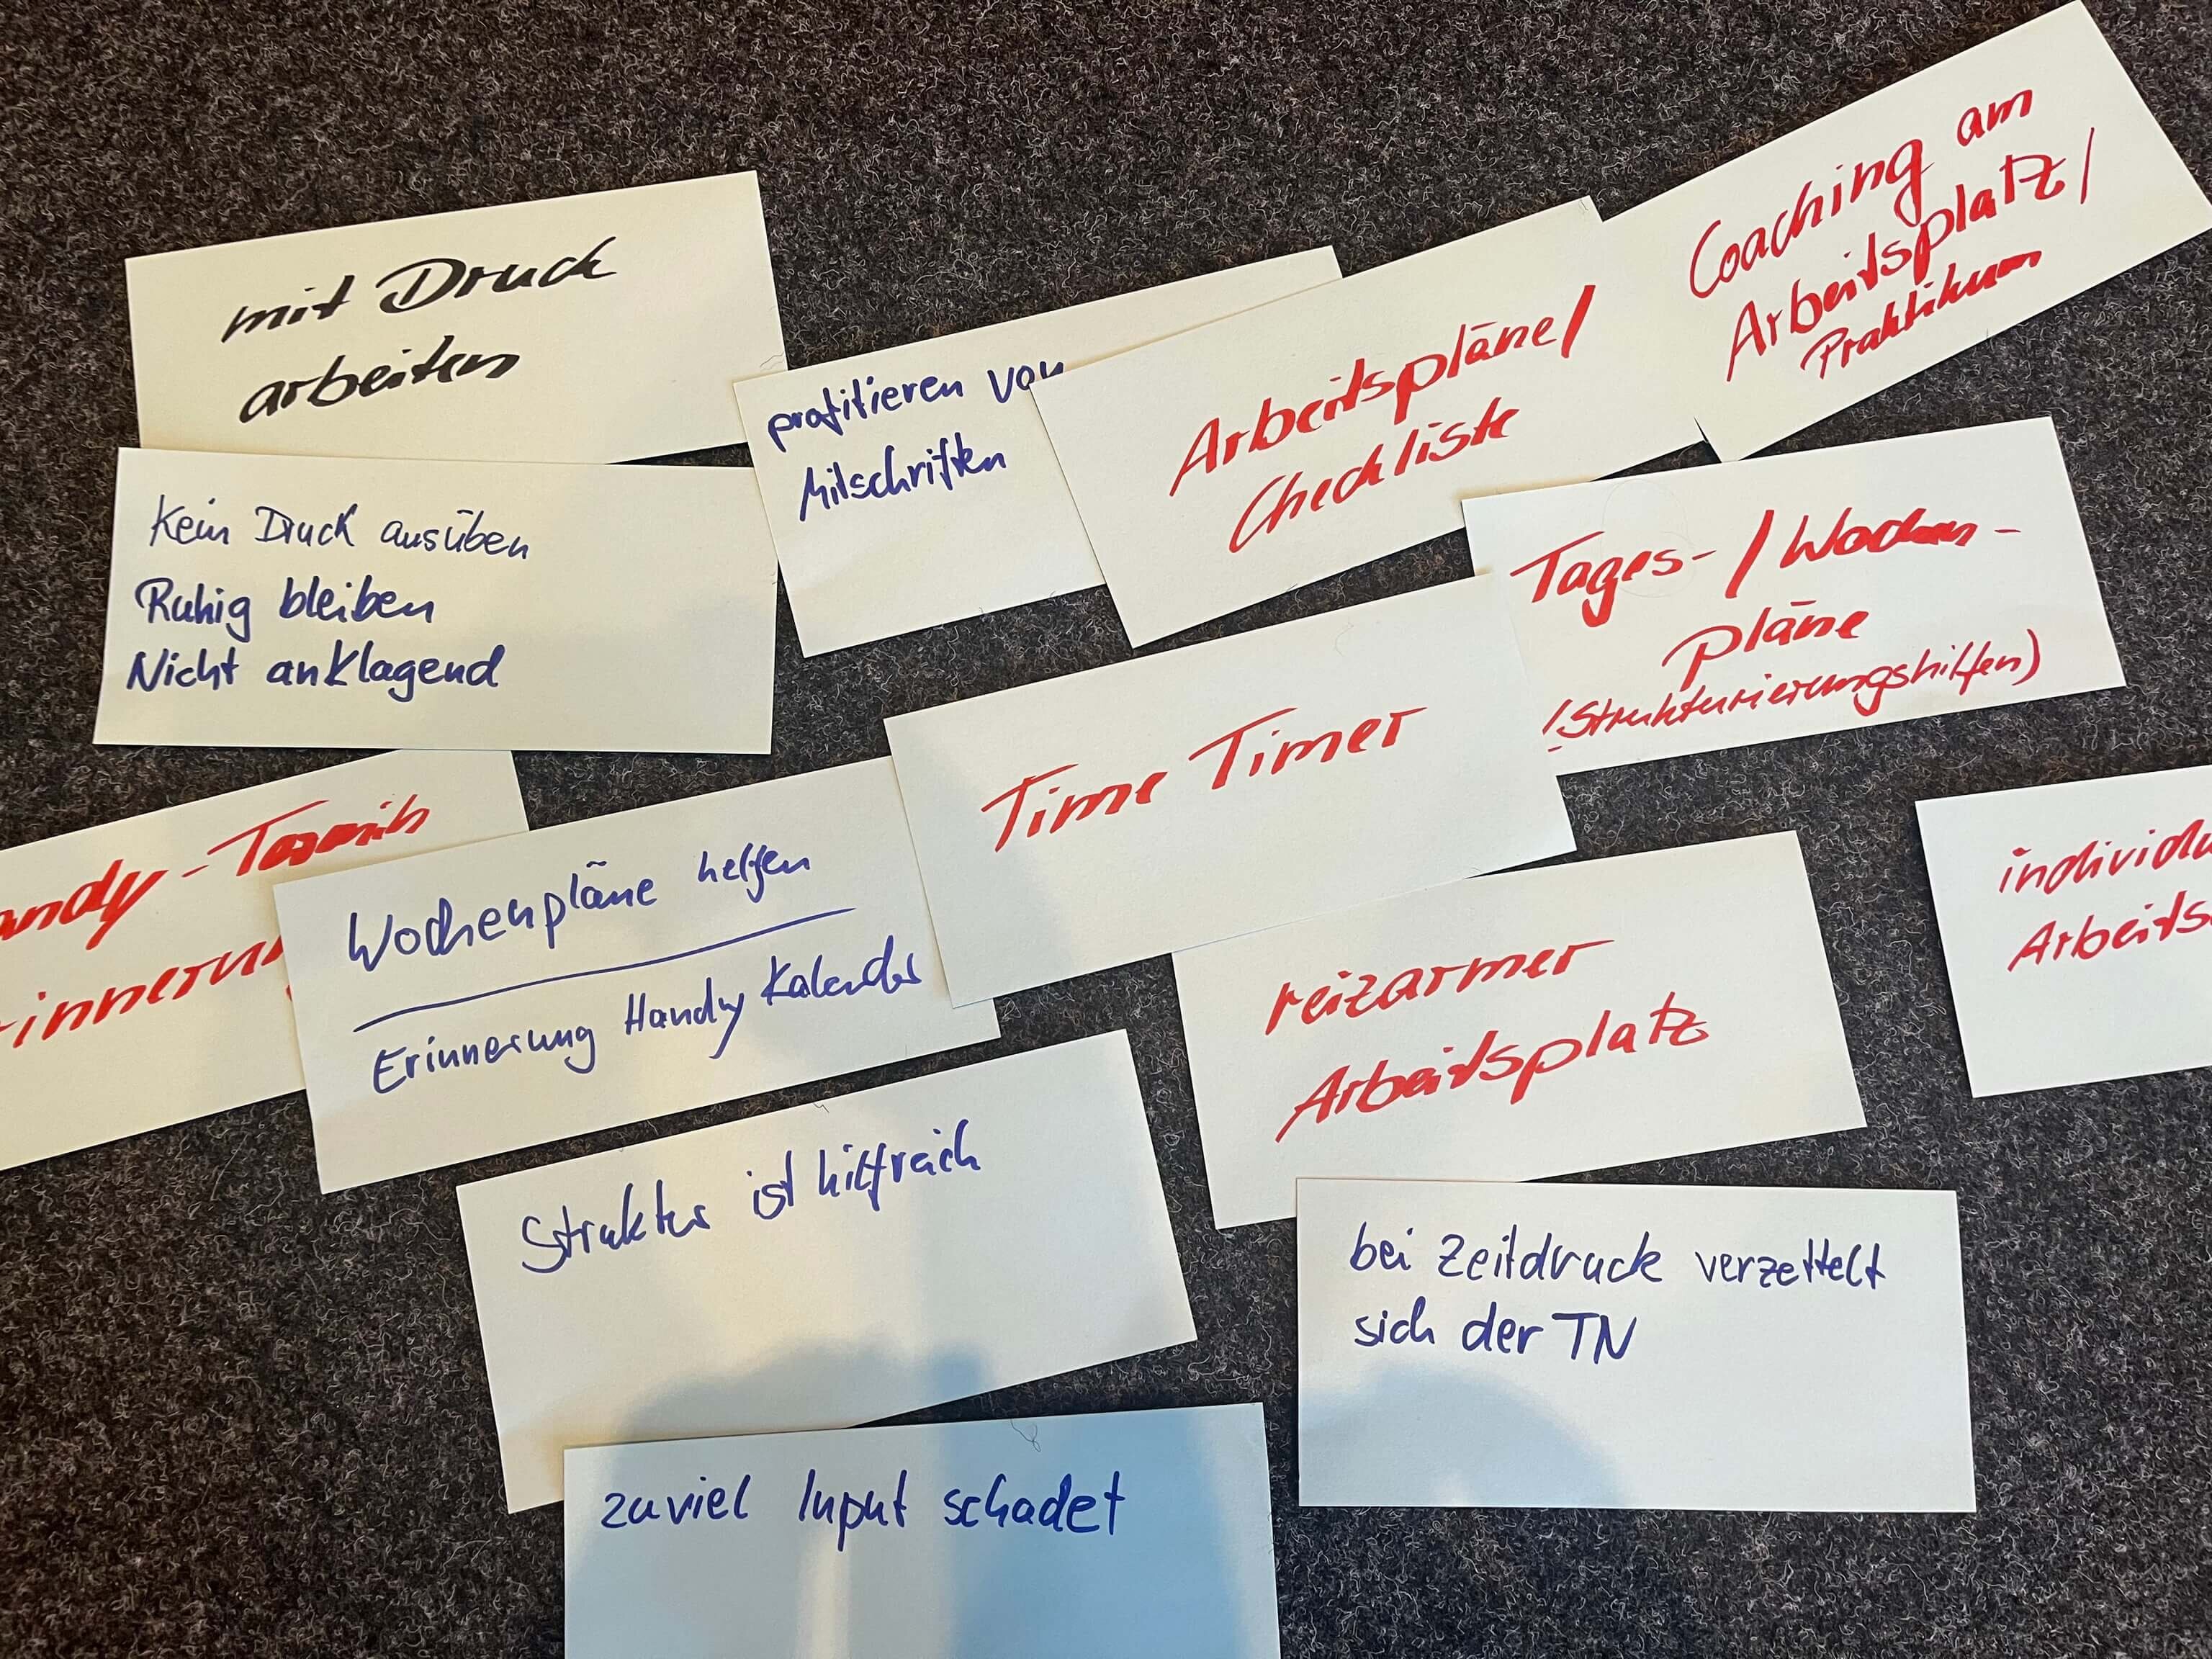 mit Druck
arbeiten
Kein Druck ausüben
Ruhig bleiben
Nicht anklagend
profitieren von
Mitschriften
Arbeitspläne/
Checkliste
Coaching am
Arbeitsplatz/
Praktikum
Tages-/Wochen-
pläne
(Strukturierungshilfen)
Time Timer
Wochenpläne helfen
Erinnerung Handy Kalender
reizarmer
Arbeitsplatz
individu
Arbeits
Struktur ist hilfreich
bei Zeitdruck verzettelt
sich der TN
zuviel Input schadet